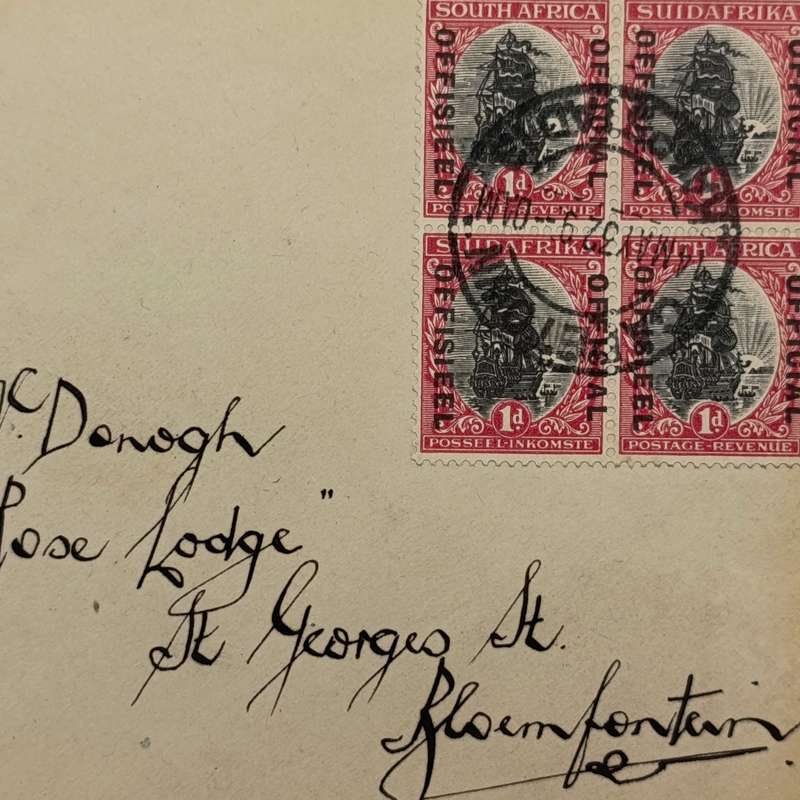 SOUTH AFRICA SUIDAFRIKA
OFFISIEEL OFFICIAL OFFISIEEL OFFICIAL
1d
POSTAGE-REVENUE POSSEEL-INKOMSTE
14 MAY 32 9
SUIDAFRIKA SOUTH AFRICA
OFFISIEEL OFFICIAL OFFISIEEL OFFICIAL
1d 1d
POSSEEL-INKOMSTE POSTAGE-REVENUE
Mc Donogh
Rose Lodge"
St Georges St.
Bloemfontein